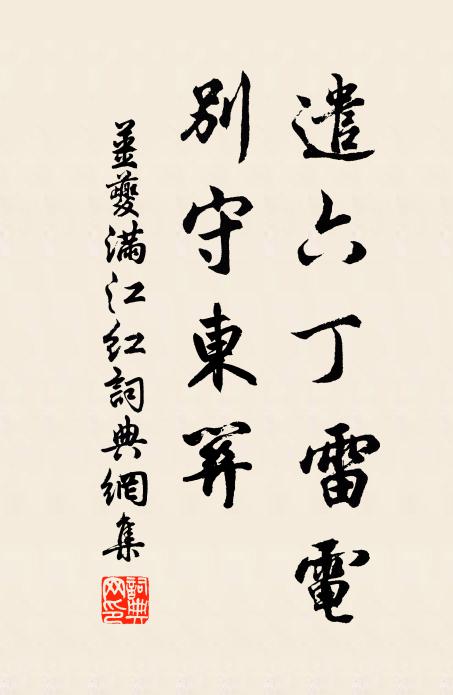 遣六丁雷電
別守東關
薑夔滿江紅詞典網集
詞典网印